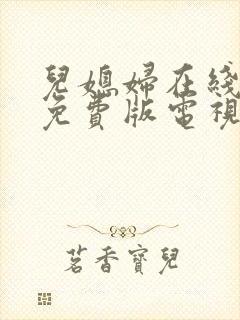 兒媳婦在綫
免費版電視
茗香寶兒